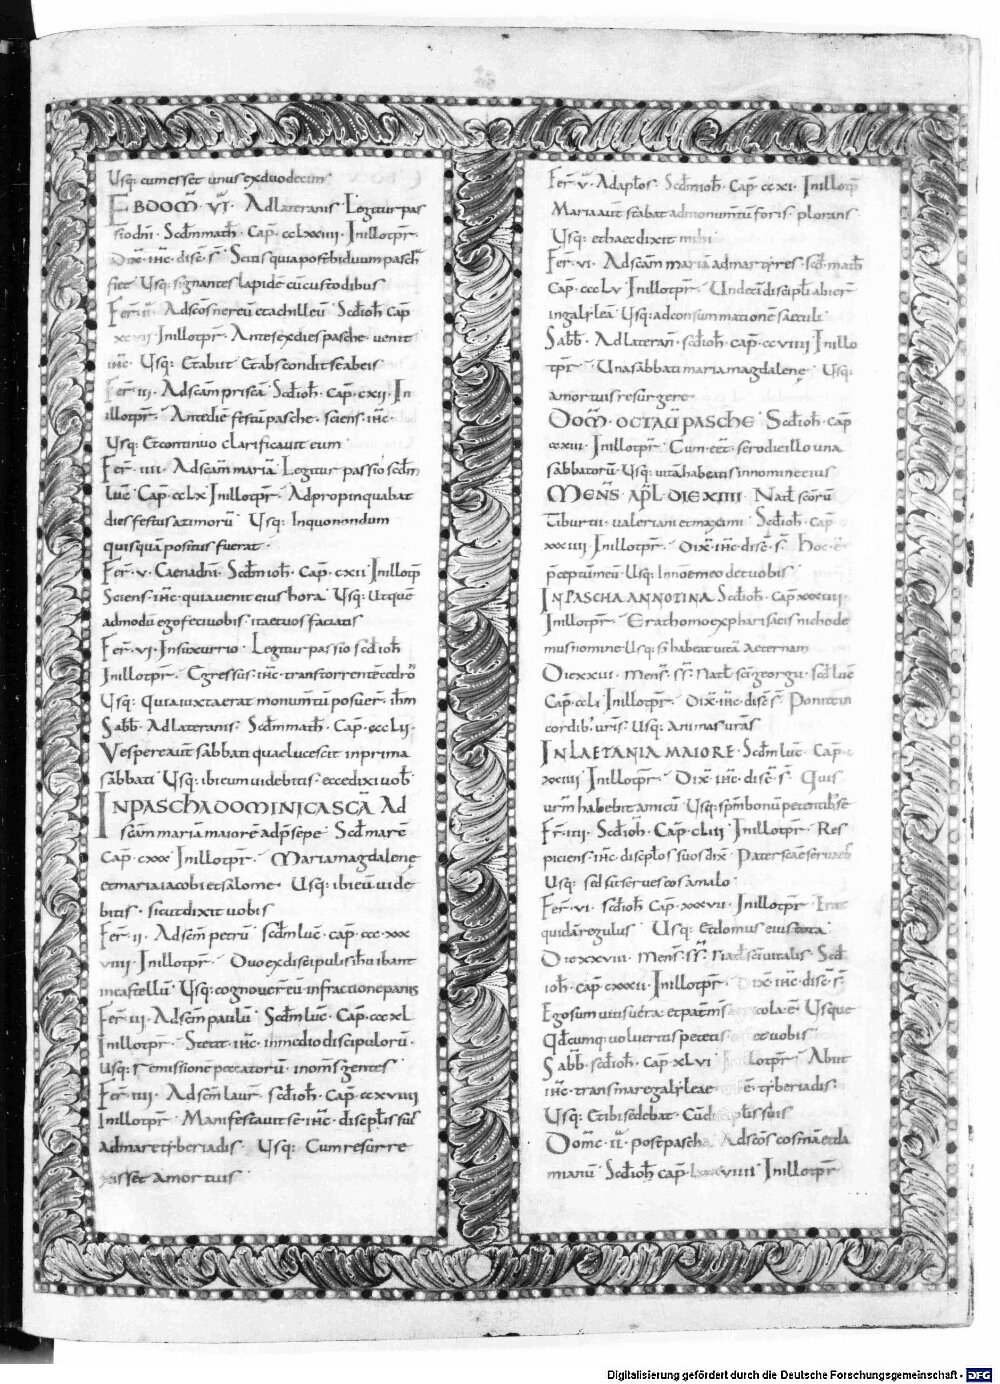 Usq: cum esset unus ex duodecim
EBDOM̅ · VI · Ad lateranis · Legitur pas
sio dn̅i · Scd̅m math̅ · Cap̅ · cclxxiiii · In illo tp̅r ·
Dix̅ · ih̅c · disc̅ · s̅ · Scitis quia post biduum pasch̅
fiet · Usq: signantes lapide̅ cu̅ custodibus
Fer̅ · ii · Ad sc̅os nereu̅ et achilleu · Scd̅ ioh̅ Cap̅
xcvii · In illo tp̅r · Ante sex dies pasche · uenit
ih̅c · Usq: Et abiit Et abscondit se ab eis
Fer̅ · iii · Ad sc̅am prisca̅ · Scd̅ ioh̅ · Cap̅ · cxii · In
illo tp̅r · Ante die̅ festu̅ pasche · sciens · ih̅c ·
Usq: Et continuo clarificauit eum
Fer̅ · iiii · Ad sc̅am maria̅ · Legitur passio scd̅m
luc̅ · Cap̅ · cclx · In illo tp̅r · Adpropinquabat
dies festus azimoru̅ · Usq: In quo nondum
quisqua̅ positus fuerat ·
Fer̅ · v · Caena dn̅i · Scd̅m ioh̅ · Cap̅ · cxii · In illo tp̅
Sciens · ih̅c · quia uenit eius hora · Usq: Ut que̅
admodu̅ ego feci uobis · ita et uos faciatis
Fer̅ · vi · In suxurrio · Legitur passio scd̅ ioh̅
In illo tp̅r · Egressus · ih̅c · trans torrente̅ cedro̅
Usq: Quia iuxta erat monum̅tu̅ posuer̅ · ih̅m
Sabb̅ · Ad lateranis · Scd̅m math̅ · Cap̅ · ccclii ·
Vespere aut̅ sabbati quae lucescit in prima
sabbati · Usq: ibi eum uidebitis · ecce dixi uob̅
IN PASCHA DOMINICA SC̅A Ad
sc̅am maria̅ maiore̅ ad p̅sepe · Scd̅ marc̅
Cap̅ · cxxx · In illo tp̅r · Maria magdalenę
et maria iacobi et salome · Usq: ibi eu̅ uide
bitis · sicut dixit uobis
Fer̅ · ii · Ad sc̅m petru̅ · scd̅m luc̅ · cap̅ · ccc · xxx
viiii · In illo tp̅r · Duo ex discipulis ih̅u ibant
in castellu̅ · Usq: cognouer̅ eu̅ in fractione panis
Fer̅ · iii · Ad sc̅m paulu̅ · Scd̅m luc̅ · Cap̅ · cccxl
In illo tp̅r · Stetit · ih̅c · in medio discipuloru̅ ·
Usq: remissione̅ peccatoru̅ · in om̅s gentes
Fer̅ · iiii · Ad sc̅m laur̅ · scd̅ ioh̅ · Cap̅ · ccxviiii
In illo tp̅r · Manifestauit se · ih̅c · discip̅lis suis
ad mare tyberiadis · Usq: Cum resurre
xisset a mortuis
Fer̅ · v · Ad ap̅los · Scd̅m ioh̅ · Cap̅ · ccxi · In illo tp̅
Maria aut̅ stabat ad monum̅tu̅ foris · plorans
Usq: et haec dixit mihi
Fer̅ · vi · Ad sc̅am maria̅ ad martyres · scd̅ math̅
Cap̅ · ccclv · In illo tp̅r · Undeci̅ discipl̅i abier̅
in galylea̅ · Usq: ad consummatione̅ saeculi
Sabb̅ · Ad lateran̅ · scd̅ ioh̅ · cap̅ · ccviiii · In illo
tp̅r · Una sabbati maria magdalenę · Usq:
a mortuis resurgere
DOM̅ · OCTAU̅ PASCHE · Scd̅ ioh̅ · cap̅
ccxiii · In illo tp̅r · Cum eet̅ · sero die illo una
sabbatoru̅ · Usq: uita̅ habeatis in nomine eius
MENS̅ · AP̅L · DIE XIIII · Nat̅ sc̅oru̅
Tiburtii · ualeriani et maximi · Scd̅ ioh̅ · cap̅
In illo tp̅r · Dix̅ · ih̅c · disc̅ · s̅ · Hoc · e̅
p̅ceptu̅ meu̅ · Usq: In no̅e meo det uobis
IN PASCHA ANNOTINA Scd̅ ioh̅ · Cap̅ xxxiiii ·
In illo tp̅r · Erat homo ex pharisaeis nichode
mus nomine Usq: s; habeat uita̅ aeternam
Die xxiii · mens̅ · s̅s̅ · Nat̅ sc̅i georgii · Scd̅ luc̅
Cap̅ · ccli · In illo tp̅r · Dix̅ · ih̅c · disc̅ · s̅ · Ponite in
cordib; uris̅ · Usq: Animas uras̅
IN LAETANIA MAIORE · Scd̅m luc̅ · Cap̅ · c
xxiiii · In illo tp̅r · Dix̅ · ih̅c · disc̅ · s̅ · Quis
urm̅ habebit amicu̅ · Usq: spm̅ bonu̅ petentib; se
Fr̅ · iiii · Scd̅ ioh̅ · Cap̅ · cliii · In illo tp̅r · Res
piciens · ih̅c · discip̅los suos dix̅ · Pater sc̅e serua eos
Usq: sed ut serues eos a malo
Fer̅ · vi · scd̅ ioh̅ Cap̅ · xxxvii · In illo tp̅r · Erat
quida̅ regulus · Usq: Et domus eius tota
Die xxviii · Mens̅ · s̅s̅ · Nat̅ sc̅i uitalis · Scd̅
ioh̅ · cap̅ · cxxxii · In illo tp̅r · Dix̅ · ih̅c · disc̅ · s̅ ·
Ego sum uitis uera · et pat̅ m̅s agricola · e̅ · Usque
Qd̅cumq: uolueritis petetis et uobis
Sabb̅ · scd̅ ioh̅ · Cap̅ · xlvi · In illo tp̅r · Abiit
ih̅c · trans mare galyleae e̅ · tyberiadis ·
Usq: Et ibi sedebat · Cu̅ discip̅lis suis
Dom̅c · ii · post pascha · Ad sc̅os cosma̅ et da
mianu̅ · Scd̅ ioh̅ cap̅ · In illo tp̅r ·
Digitalisierung gefördert durch die Deutsche Forschungsgemeinschaft - DFG